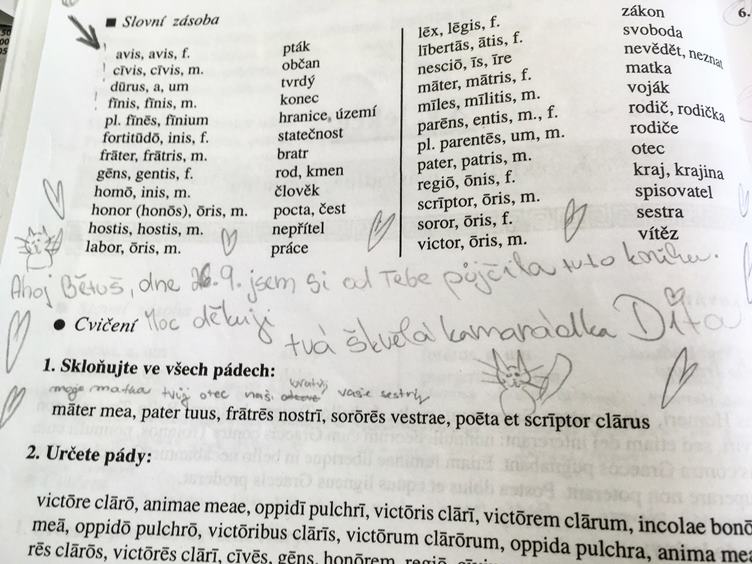 ■ Slovní zásoba
avis, avis, f. pták
! cīvis, cīvis, m. občan
! dūrus, a, um tvrdý
! fīnis, fīnis, m. konec
pl. fīnēs, fīnium hranice, území
fortitūdō, inis, f. statečnost
frāter, frātris, m. bratr
gēns, gentis, f. rod, kmen
homō, inis, m. člověk
honor (honōs), ōris, m. pocta, čest
hostis, hostis, m. nepřítel
labor, ōris, m. práce
lēx, lēgis, f. zákon
lībertās, ātis, f. svoboda
nesciō, īs, īre nevědět, neznat
māter, mātris, f. matka
mīles, mīlitis, m. voják
parēns, entis, m., f. rodič, rodička
pl. parentēs, um, m. rodiče
pater, patris, m. otec
regiō, ōnis, f. kraj, krajina
scrīptor, ōris, m. spisovatel
soror, ōris, f. sestra
victor, ōris, m. vítěz
6.
Ahoj Bětuš, dne 26.9. jsem si od Tebe půjčila tuto knihu.
● Cvičení Moc děkuji
tvá skvělá kamarádka Dita
1. Skloňujte ve všech pádech:
moje matka tvůj otec naši bratři vaše sestry
māter mea, pater tuus, frātrēs nostrī, sorōrēs vestrae, poēta et scrīptor clārus
2. Určete pády:
victōre clārō, animae meae, oppidī pulchrī, victōris clārī, victōrem clārum, incolae bonō
meā, oppidō pulchrō, victōribus clārīs, victōrum clārōrum, oppida pulchra, anima mea
rēs clārōs, victōrēs clārī, cīvēs, gēns, honōrem, regiō,